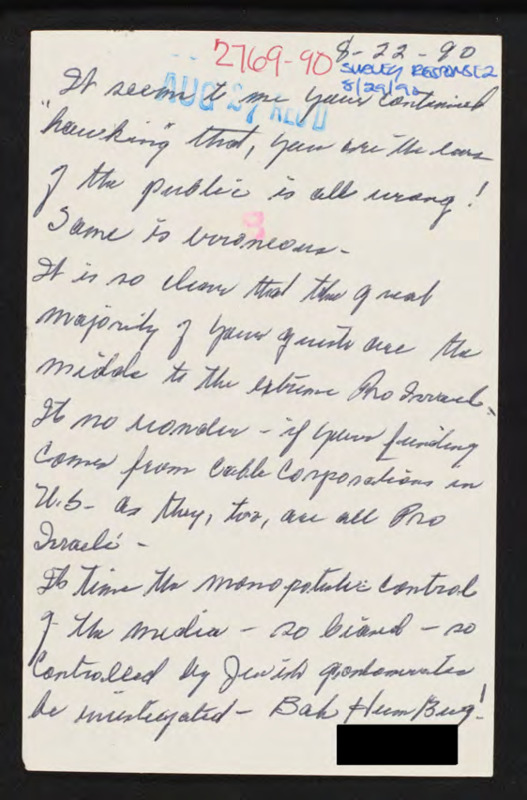 2769-90 8-22-90
SURVEY RESPONSE 2
8/29/90
AUG 27 REC'D
It seems to me your continued
"hawking" that, you are the ears
of the public is all wrong!
8
Same is erroneous-
It is so clear that the great
majority of your guests are the
middle to the extreme Pro Israel-
It no wonder - if your funding
comes from Cable Corporations in
U.S- as they, too, are all Pro
Israeli-
Its time the monopolistic control
of the media - so biased - so
Controlled by Jewish
be investigated - Bah Hum Bug!